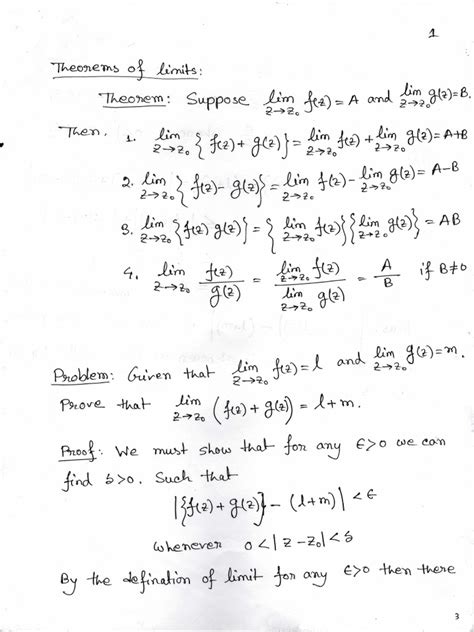 1
Theorems of limits:
Theorem: Suppose lim z→z₀ f(z) = A and lim z→z₀ g(z) = B.
Then. 1. lim z→z₀ { f(z) + g(z) } = lim z→z₀ f(z) + lim z→z₀ g(z) = A+B
2. lim z→z₀ { f(z) - g(z) } = lim z→z₀ f(z) - lim z→z₀ g(z) = A-B
3. lim z→z₀ { f(z) g(z) } = { lim z→z₀ f(z) } { lim z→z₀ g(z) } = AB
4. lim z→z₀ f(z)/g(z) = lim z→z₀ f(z) / lim z→z₀ g(z) = A/B if B≠0
Problem: Given that lim z→z₀ f(z) = l and lim z→z₀ g(z) = m.
Prove that lim z→z₀ ( f(z) + g(z) ) = l+m.
Proof: We must show that for any ϵ>0 we can
find δ>0. Such that
|{f(z) + g(z)} - (l+m)| < ϵ
whenever 0<|z-z₀|<δ
By the defination of limit for any ϵ>0 then there
3